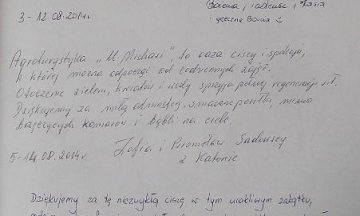 3-12.08.2014r.
i
Agroturystyka „U Michasi", to oaza ciszy i spokoju,
w której można odpocząć od codziennych zajęć.
Otoczenie zielem, kwiatów i wody sprzyja pełnej regeneracji sił.
Dziękujemy za miłą atmosferę, smaczne posiłki, mimo
bzyczących komarów i bąbli na ciele.
Zofia i Bronisław Sadowscy
5-14.08.2014r z Katowic
Dziękujemy za tę niezwykłą ciszę w tym urokliwym zakątku,